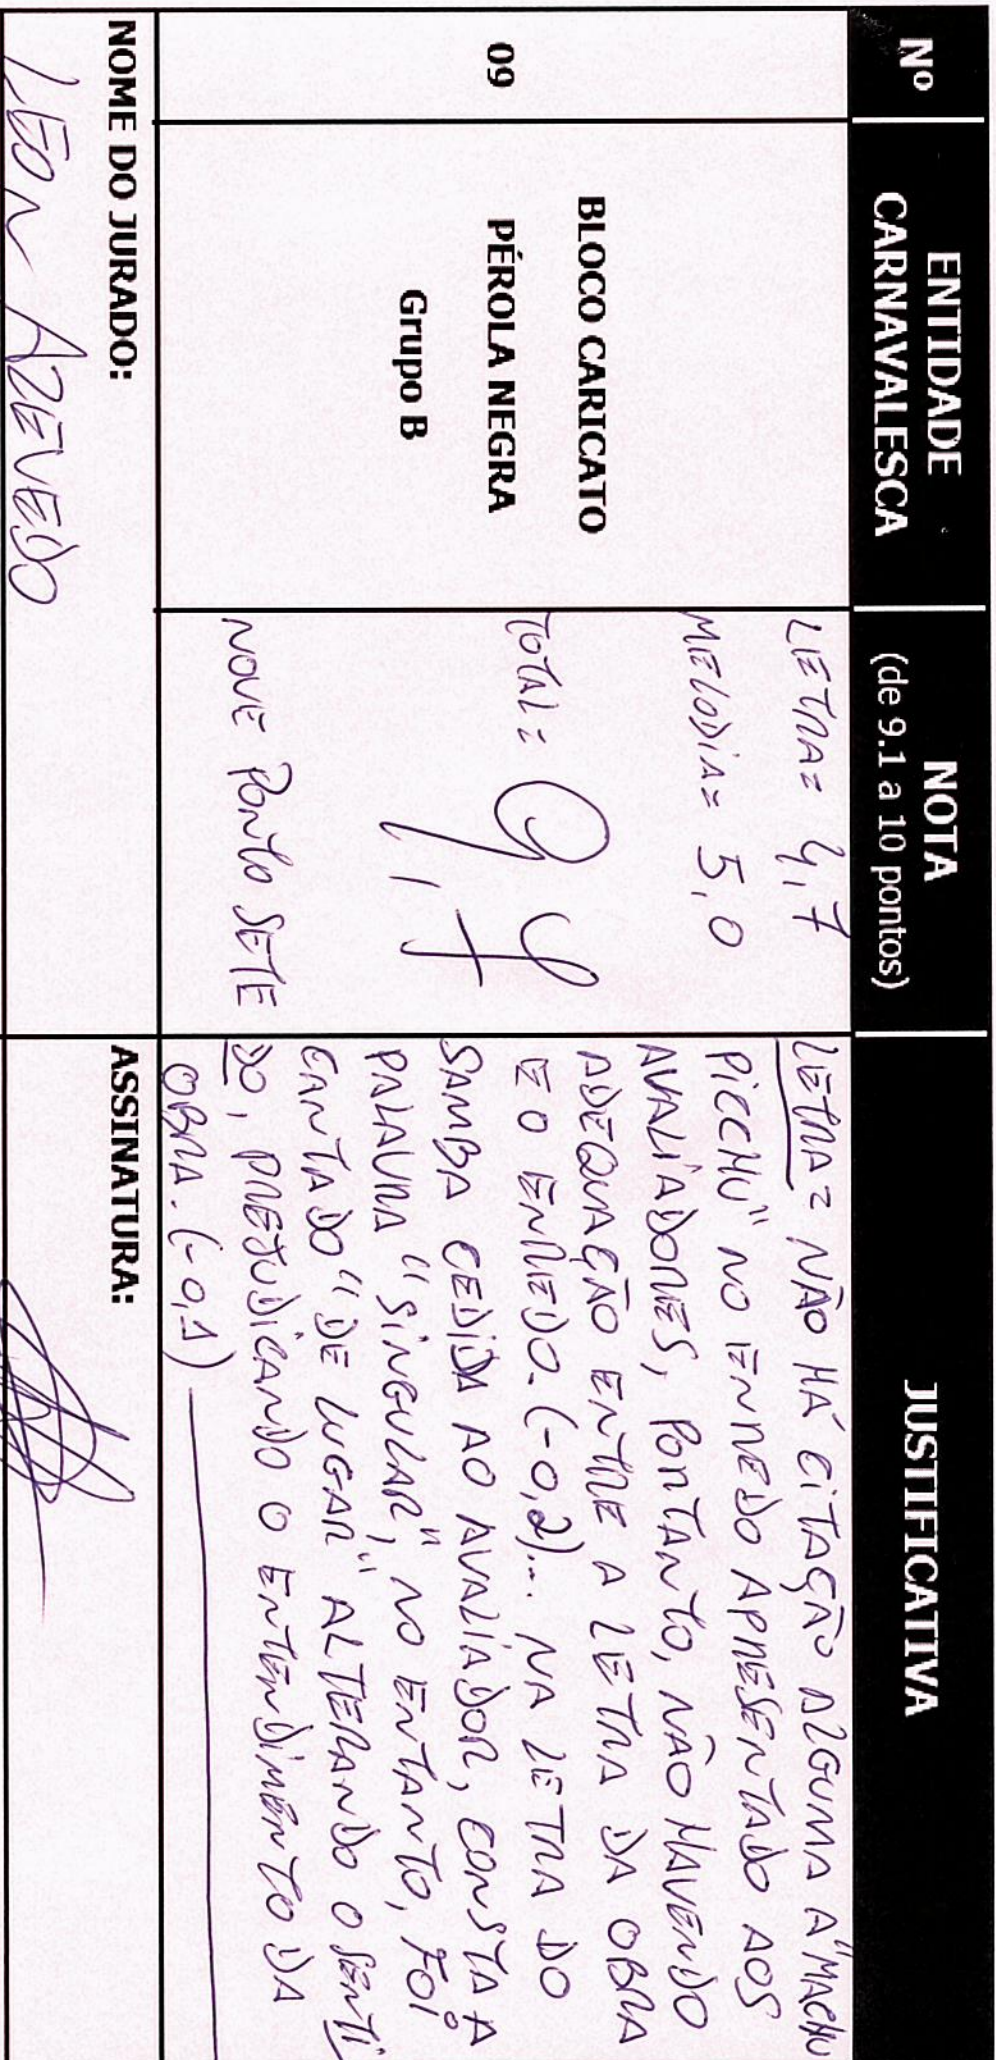 Nº
ENTIDADE
CARNAVALESCA
NOTA
(de 9.1 a 10 pontos)
JUSTIFICATIVA
09
BLOCO CARICATO
PÉROLA NEGRA
Grupo B
LETRA= 4,7
MELODIA= 5,0
TOTAL= 9,7
NOVE PONTO SETE
LETRA= NÃO HÁ CITAÇÃO ALGUMA A "MACHU
PICCHU" NO ENREDO APRESENTADO AOS
AVALIADORES, PORTANTO, NÃO HAVENDO
ADEQUAÇÃO ENTRE A LETRA DA OBRA
E O ENREDO. (-0,2)... NA LETRA DO
SAMBA CEDIDA AO AVALIADOR, CONSTA A
PALAVRA "SINGULAR", NO ENTANTO, FOI
CANTADO "DE LUGAR" ALTERANDO O SENTI
DO, PREJUDICANDO O ENTENDIMENTO DA
OBRA. (-0,1)
NOME DO JURADO:
LÉON AZEVEDO
ASSINATURA: